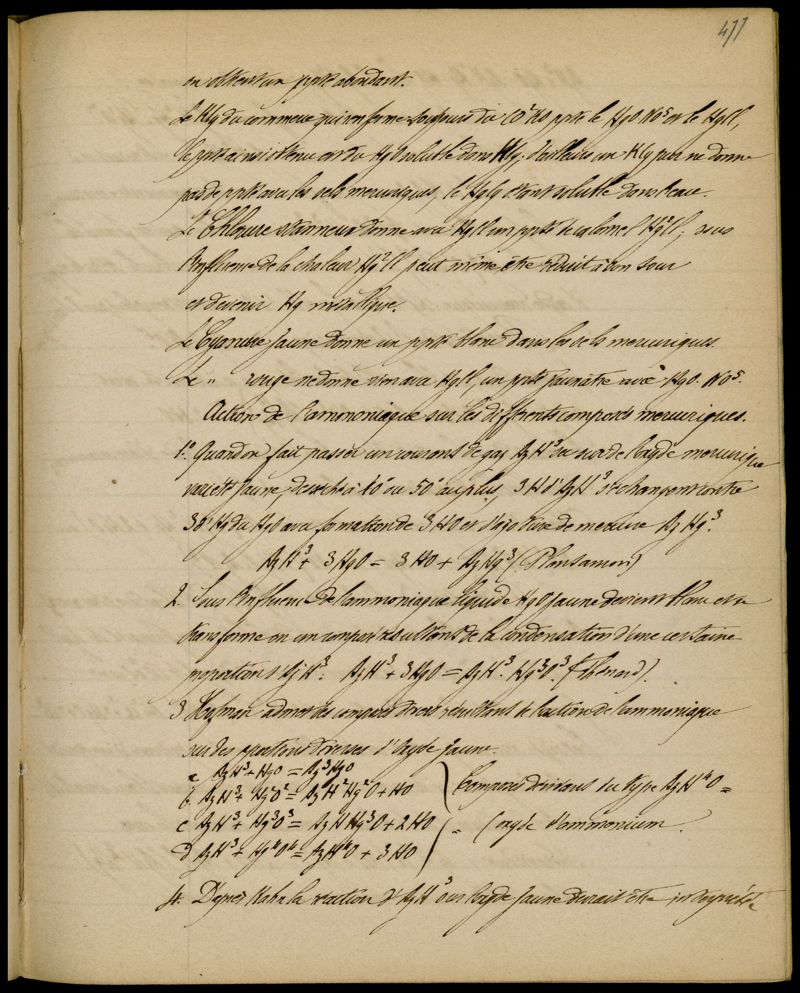 477
on obtient un ppté abondant.
Le KCy du commerce qui renferme toujours du CO²KO ppte le HgO NO⁵ et le HgCl,
le ppté ainsi obtenu est du HgO soluble dans KCy. D'ailleurs un KCy pur ne donne
pas de ppté avec les sels mercuriques, le HgCy étant soluble dans l'eau.
Le Chlorure stanneux donne avec HgCl un ppté de calomel Hg²Cl, sous
l'influence de la chaleur Hg²Cl peut même être réduit à son tour
et devenir Hg métallique.
Le Cyanure jaune donne un ppté blanc dans les sels mercuriques
Le " rouge ne donne rien avec HgCl, un ppté jaunâtre avec HgO. NO⁵.
Action de l'ammoniaque sur les différents composés mercuriques.
1º. Quand on fait passer un courant de gaz AzH³ sur de l'oxyde mercurique
variété jaune, desséché à 40° ou 50° au plus, 3 H d'AzH³ s'échangent contre
3 d'Hg du HgO avec formation de 3HO et d'azoture de mercure AzHg³.
AzH³ + 3HgO = 3HO + AzHg³ (Plantamour)
2. Sous l'influence de l'ammoniaque liquide HgO jaune devient blanc et se
transforme en un composé résultant de la condensation d'une certaine
proportion d'AzH³: AzH³ + 3HgO = AzH³. Hg³O³. (Thénard).
3 Hofman admet des composés divers résultant de l'action de l'ammoniaque
sur des proportions diverses d'oxyde jaune.
a AzH³ + HgO = AzH³HgO
b. AzH³ + Hg²O² = AzH²Hg²O + HO } Composés dérivant du type AzH⁴O =
c AzH³ + Hg³O³ = AzHHg³O + 2HO " (oxyde d'ammonium.
d AzH³ + Hg⁴O⁴ = AzH⁴O + 3HO
4. D'après la réaction d'AzH³ sur l'oxyde jaune devrait être interprétée